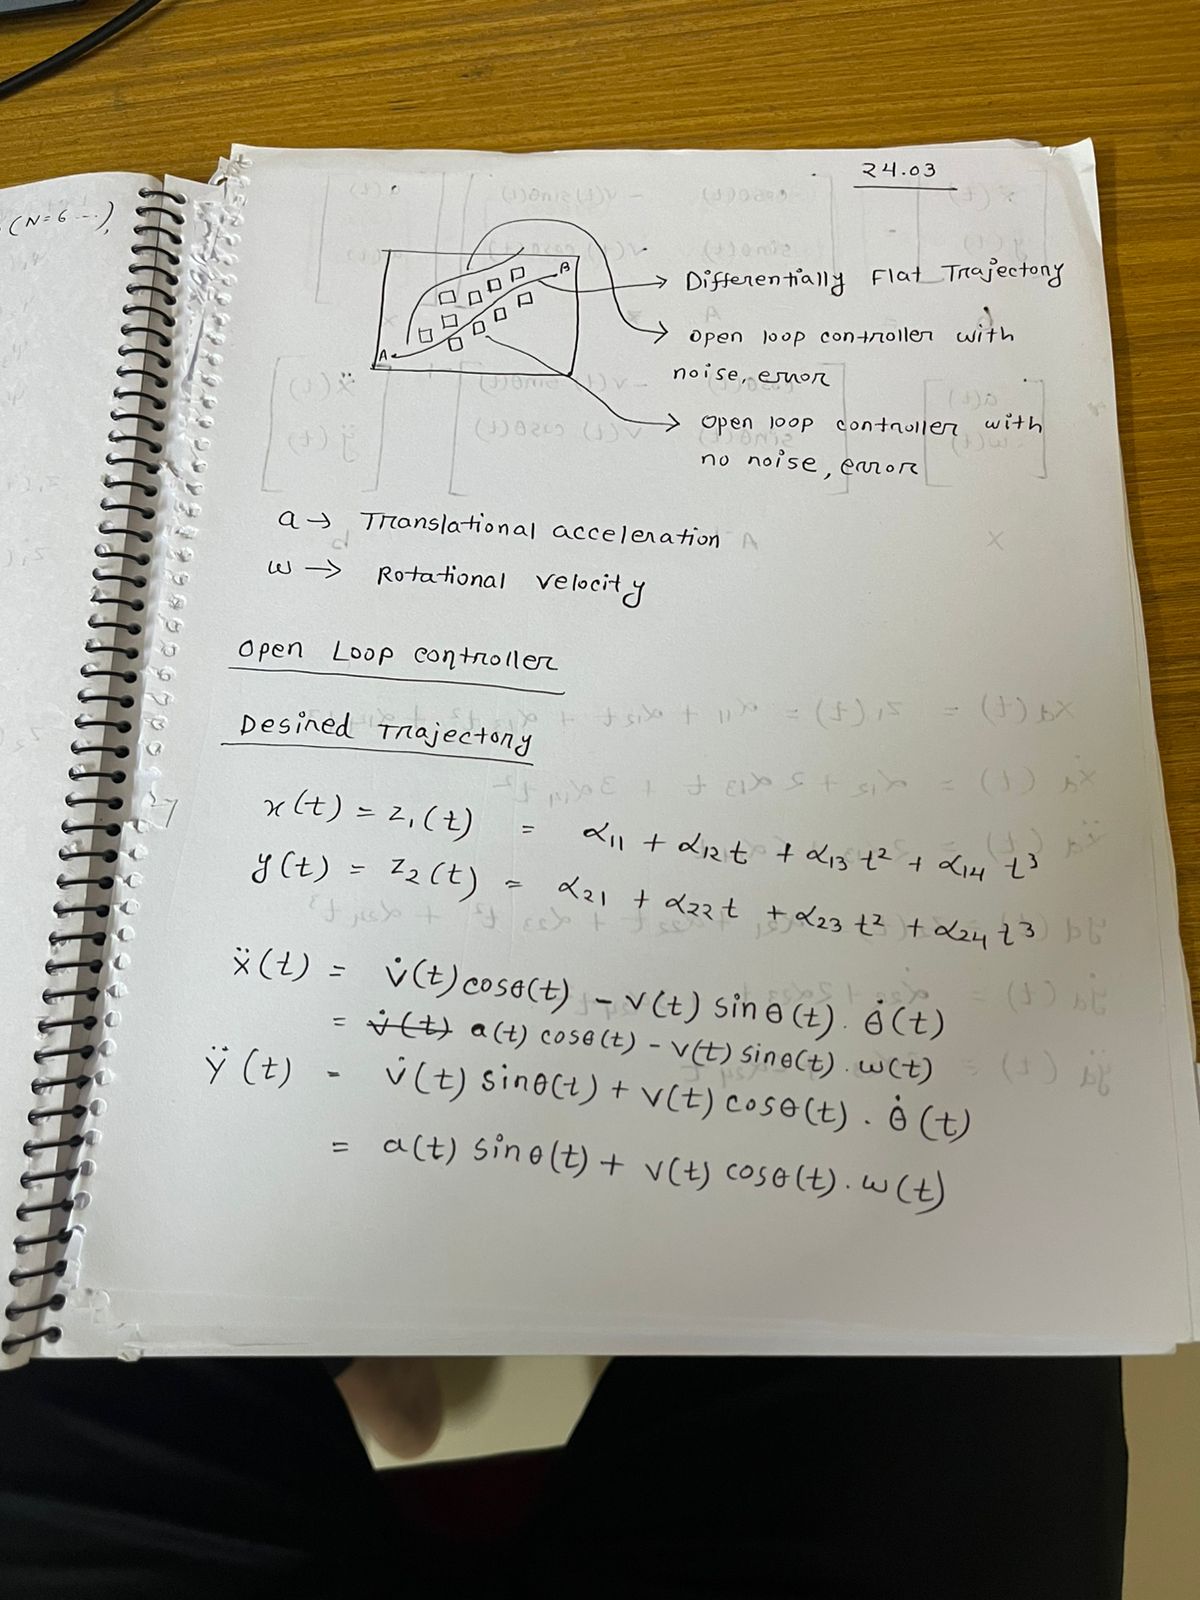 (N=6 ...),
24.03
A
B
Differentially Flat Trajectory
open loop controller with
noise, error
open loop controller with
no noise, error
a → Translational acceleration
ω → Rotational velocity
open Loop controller
Desired Trajectory
x(t) = z₁(t) = α₁₁ + α₁₂t + α₁₃t² + α₁₄t³
y(t) = z₂(t) = α₂₁ + α₂₂t + α₂₃t² + α₂₄t³
ẍ(t) = v̇(t)cosθ(t) - v(t) sinθ(t). θ̇(t)
= v̇(t) a(t) cosθ(t) - v(t) sinθ(t). ω(t)
ÿ(t) = v̇(t) sinθ(t) + v(t) cosθ(t). θ̇(t)
= a(t) sinθ(t) + v(t) cosθ(t). ω(t)